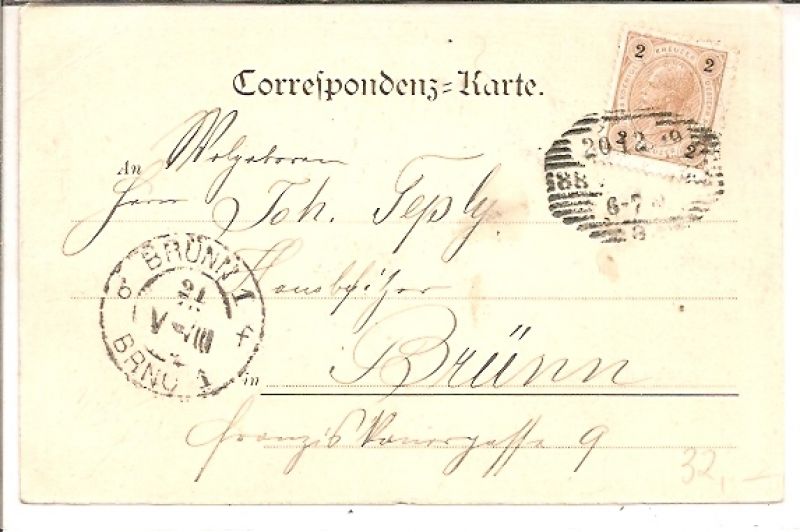 Correspondenz-Karte.
2 KREUZER 2
2 2
20 12 9
88
6-7
9
An Wolgeboren
Herrn Joh. Teply
Hausbesitzer
BRÜNN 1
21
BRNO 1
in Brünn
Franziskanergasse 9
32,-